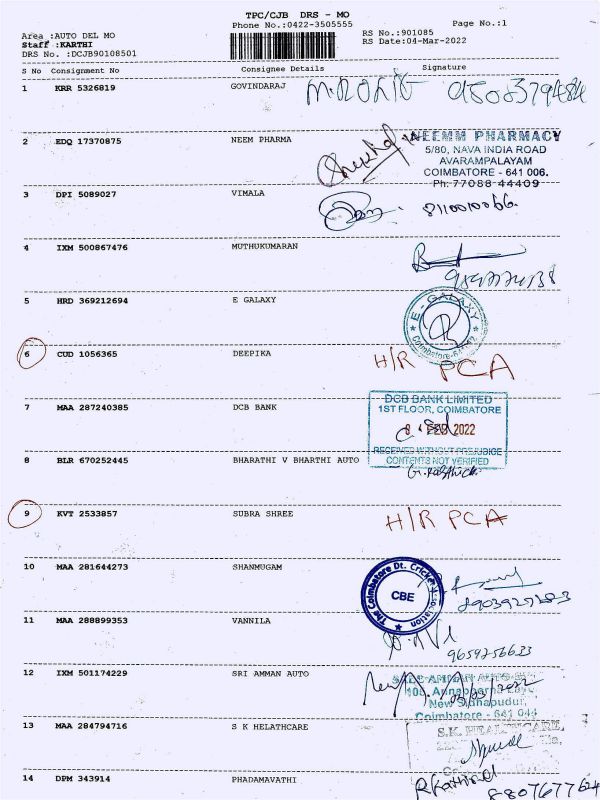 TPC/CJB DRS - MO
Phone No.:0422-3505555
Page No.:1
Area :AUTO DEL MO
Staff :KARTHI
DRS No. :DCJB90108501
RS No.:901085
RS Date:04-Mar-2022
S No Consignment No Consignee Details Signature
1 KRR 5326819 GOVINDARAJ
2 EDQ 17370875 NEEM PHARMA
NEEMM PHARMACY
5/80, NAVA INDIA ROAD
AVARAMPALAYAM
COIMBATORE - 641 006.
Ph: 77088 44409
3 DPI 5089027 VIMALA 8110010066.
4 IXM 500867476 MUTHUKUMARAN
5 HRD 369212694 E GALAXY
E - GALAXY
6 CUD 1056365 DEEPIKA H/R PCA
7 MAA 287240385 DCB BANK
DCB BANK LIMITED
1ST FLOOR, COIMBATORE
2022
RECEIVED WITHOUT PREJUDICE
CONTENTS NOT VERIFIED
8 BLR 670252445 BHARATHI V BHARTHI AUTO
9 KVT 2533857 SUBRA SHREE H/R PCA
10 MAA 281644273 SHANMUGAM
The Coimbatore Dt. Cricket
CBE
11 MAA 288899353 VANNILA
9659256633
12 IXM 501174229 SRI AMMAN AUTO
New Sidhapudur,
Coimbatore - 641 044
13 MAA 284794716 S K HELATHCARE
S.K. HEALTHCARE,
14 DPM 343914 PHADAMAVATHI
8807677624